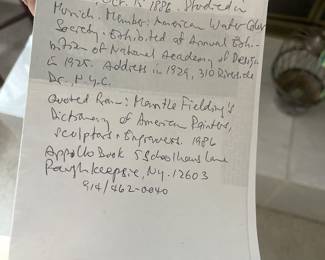 Oct. 15 1886. Studied in
Munich. Member: American Water Color
Society. Exhibited at Annual Exhi-
bition of National Academy of Design
in 1925. Address in 1929, 310 Riverside
Dr., N.Y.C.
Quoted from: Mantle Fielding's
Dictionary of American Painters,
Sculptors & Engravers. 1986
Appollo Book 5 Schoolhouse Lane
Poughkeepsie, NY. 12603
914/462-0040